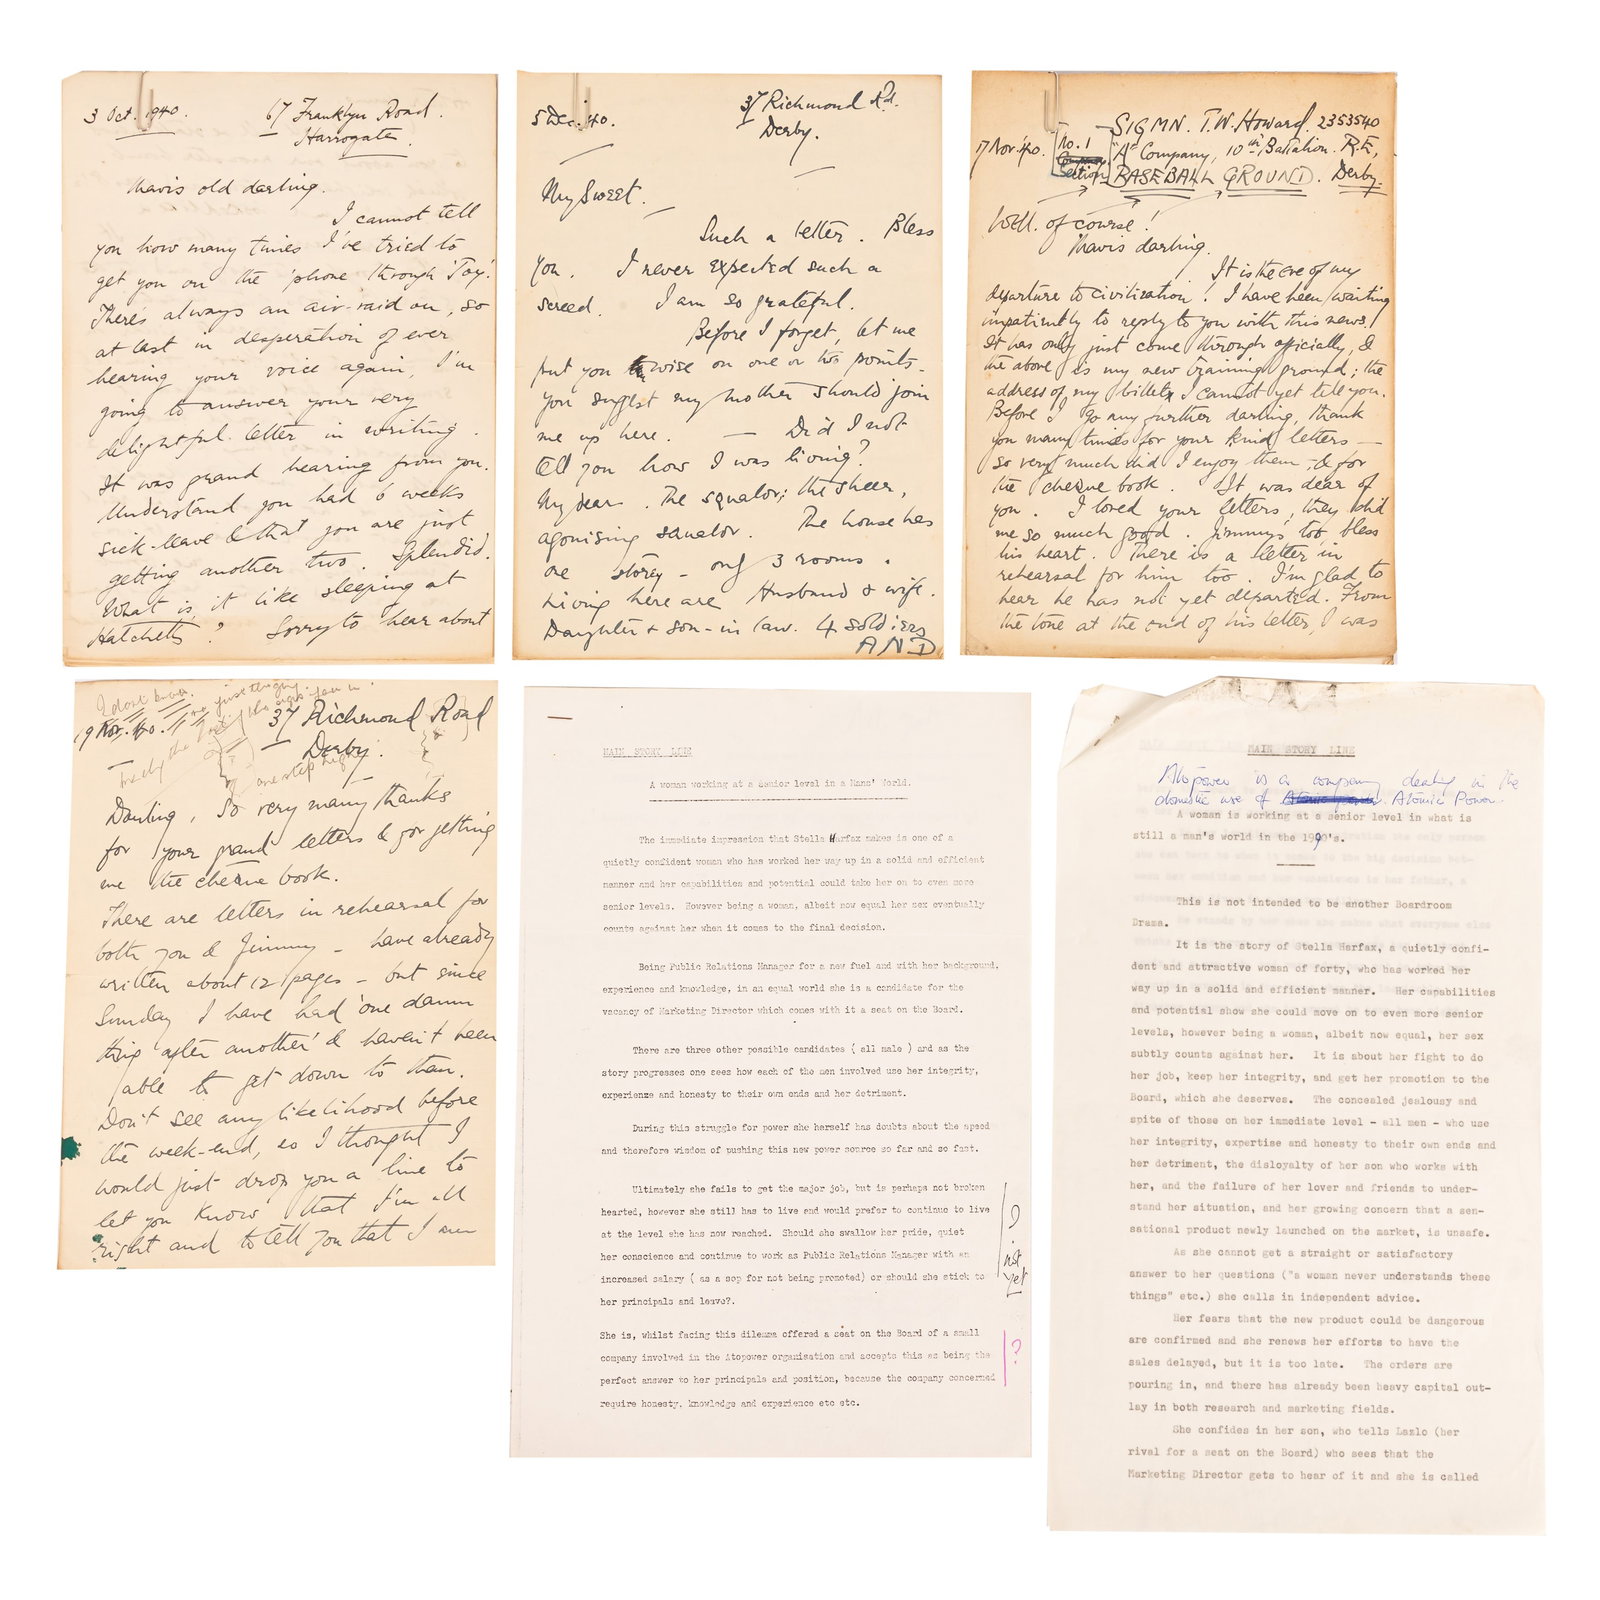 3 Oct. 1940.
67 Franklyn Road.
Harrogate.
Mavis old darling.
I cannot tell
you how many times I've tried to
get you on the 'phone through 'Tay'.
There's always an air-raid on, so
at last in desperation of ever
hearing your voice again, I'm
going to answer your very
delightful letter in writing.
It was grand hearing from you.
Understand you had 6 weeks
sick-leave & that you are just
getting another two. Splendid.
What is it like sleeping at
Hatchetts? Sorry to hear about
5 Dec. 40.
37 Richmond Rd.
Derby.
My Sweet.
Such a letter. Bless
you. I never expected such a
screed. I am so grateful.
Before I forget, let me
put you wise on one or two points.
You suggest my mother should join
me up here. — Did I not
tell you how I was living?
My dear. The squalor; the sheer,
agonising squalor. The house has
one storey - only 3 rooms.
Living here are Husband & wife.
Daughter & son-in law. 4 soldiers
AND
17 Nov. '40.
No. 1
Section
SIGMN. T.W. Howard. 2353540
"A" Company, 10th Battalion. R.E,
BASEBALL GROUND. Derby.
Well. of course!
Mavis darling.
It is the eve of my
departure to civilization! I have been waiting
impatiently to reply to you with this news.
It has only just come through officially, &
the above is my new training ground; the
address of my billets I cannot yet tell you.
Before I go any further darling, thank
you many times for your kind letters —
so very much did I enjoy them - & for
the cheque book. It was dear of
you. I loved your letters, they did
me so much good. Jimmy's too, bless
his heart. There is a letter in
rehearsal for him too. I'm glad to
hear he has not yet departed. From
the tone at the end of his letter, I was
I don't know.
19 Nov. 40.
37 Richmond Road
Derby.
one step higher
Darling, So very many thanks
for your grand letters & for getting
me the cheque book.
There are letters in rehearsal for
both you & Jimmy - have already
written about 12 pages - but since
Sunday I have had 'one damn
thing after another' & haven't been
able to get down to them.
Don't see any likelihood before
the week-end, so I thought I
would just drop you a line to
let you know that I'm all
right and to tell you that I am
MAIN STORY LINE
A woman working at a senior level in a Mans' World.
The immediate impression that Stella Harfax makes is one of a
quietly confident women who has worked her way up in a solid and efficient
manner and her capabilities and potential could take her on to even more
senior levels. However being a woman, albeit now equal her sex eventually
counts against her when it comes to the final decision.
Being Public Relations Manager for a new fuel and with her background,
experience and knowledge, in an equal world she is a candidate for the
vacancy of Marketing Director which comes with it a seat on the Board.
There are three other possible candidates ( all male ) and as the
story progresses one sees how each of the men involved use her integrity,
experience and honesty to their own ends and her detriment.
During this struggle for power she herself has doubts about the speed
and therefore wisdom of pushing this new power source so far and so fast.
Ultimately she fails to get the major job, but is perhaps not broken
hearted, however she still has to live and would prefer to continue to live
at the level she has now reached. Should she swallow her pride, quiet
her conscience and continue to work as Public Relations Manager with an
increased salary ( as a sop for not being promoted) or should she stick to
her principals and leave?.
? not yet
She is, whilst facing this dilema offered a seat on the Board of a small
company involved in the Atopower organisation and accepts this as being the
perfect answer to her principals and position, because the company concerned
require honesty, knowledge and experience etc etc.
?
MAIN STORY LINE
Atopower is a company dealing in the
domestic use of Atomic Power.
A woman is working at a senior level in what is
still a man's world in the 1990's.
This is not intended to be another Boardroom
Drama.
It is the story of Stella Harfax, a quietly confi-
dent and attractive woman of forty, who has worked her
way up in a solid and efficient manner. Her capabilities
and potential show she could move on to even more senior
levels, however being a woman, albeit now equal, her sex
subtly counts against her. It is about her fight to do
her job, keep her integrity, and get her promotion to the
Board, which she deserves. The concealed jealousy and
spite of those on her immediate level - all men - who use
her integrity, expertise and honesty to their own ends and
her detriment, the disloyalty of her son who works with
her, and the failure of her lover and friends to under-
stand her situation, and her growing concern that a sen-
sational product newly launched on the market, is unsafe.
As she cannot get a straight or satisfactory
answer to her questions ("a woman never understands these
things" etc.) she calls in independent advice.
Her fears that the new product could be dangerous
are confirmed and she renews her efforts to have the
sales delayed, but it is too late. The orders are
pouring in, and there has already been heavy capital out-
lay in both research and marketing fields.
She confides in her son, who tells Lazlo (her
rival for a seat on the Board) who sees that the
Marketing Director gets to hear of it and she is called